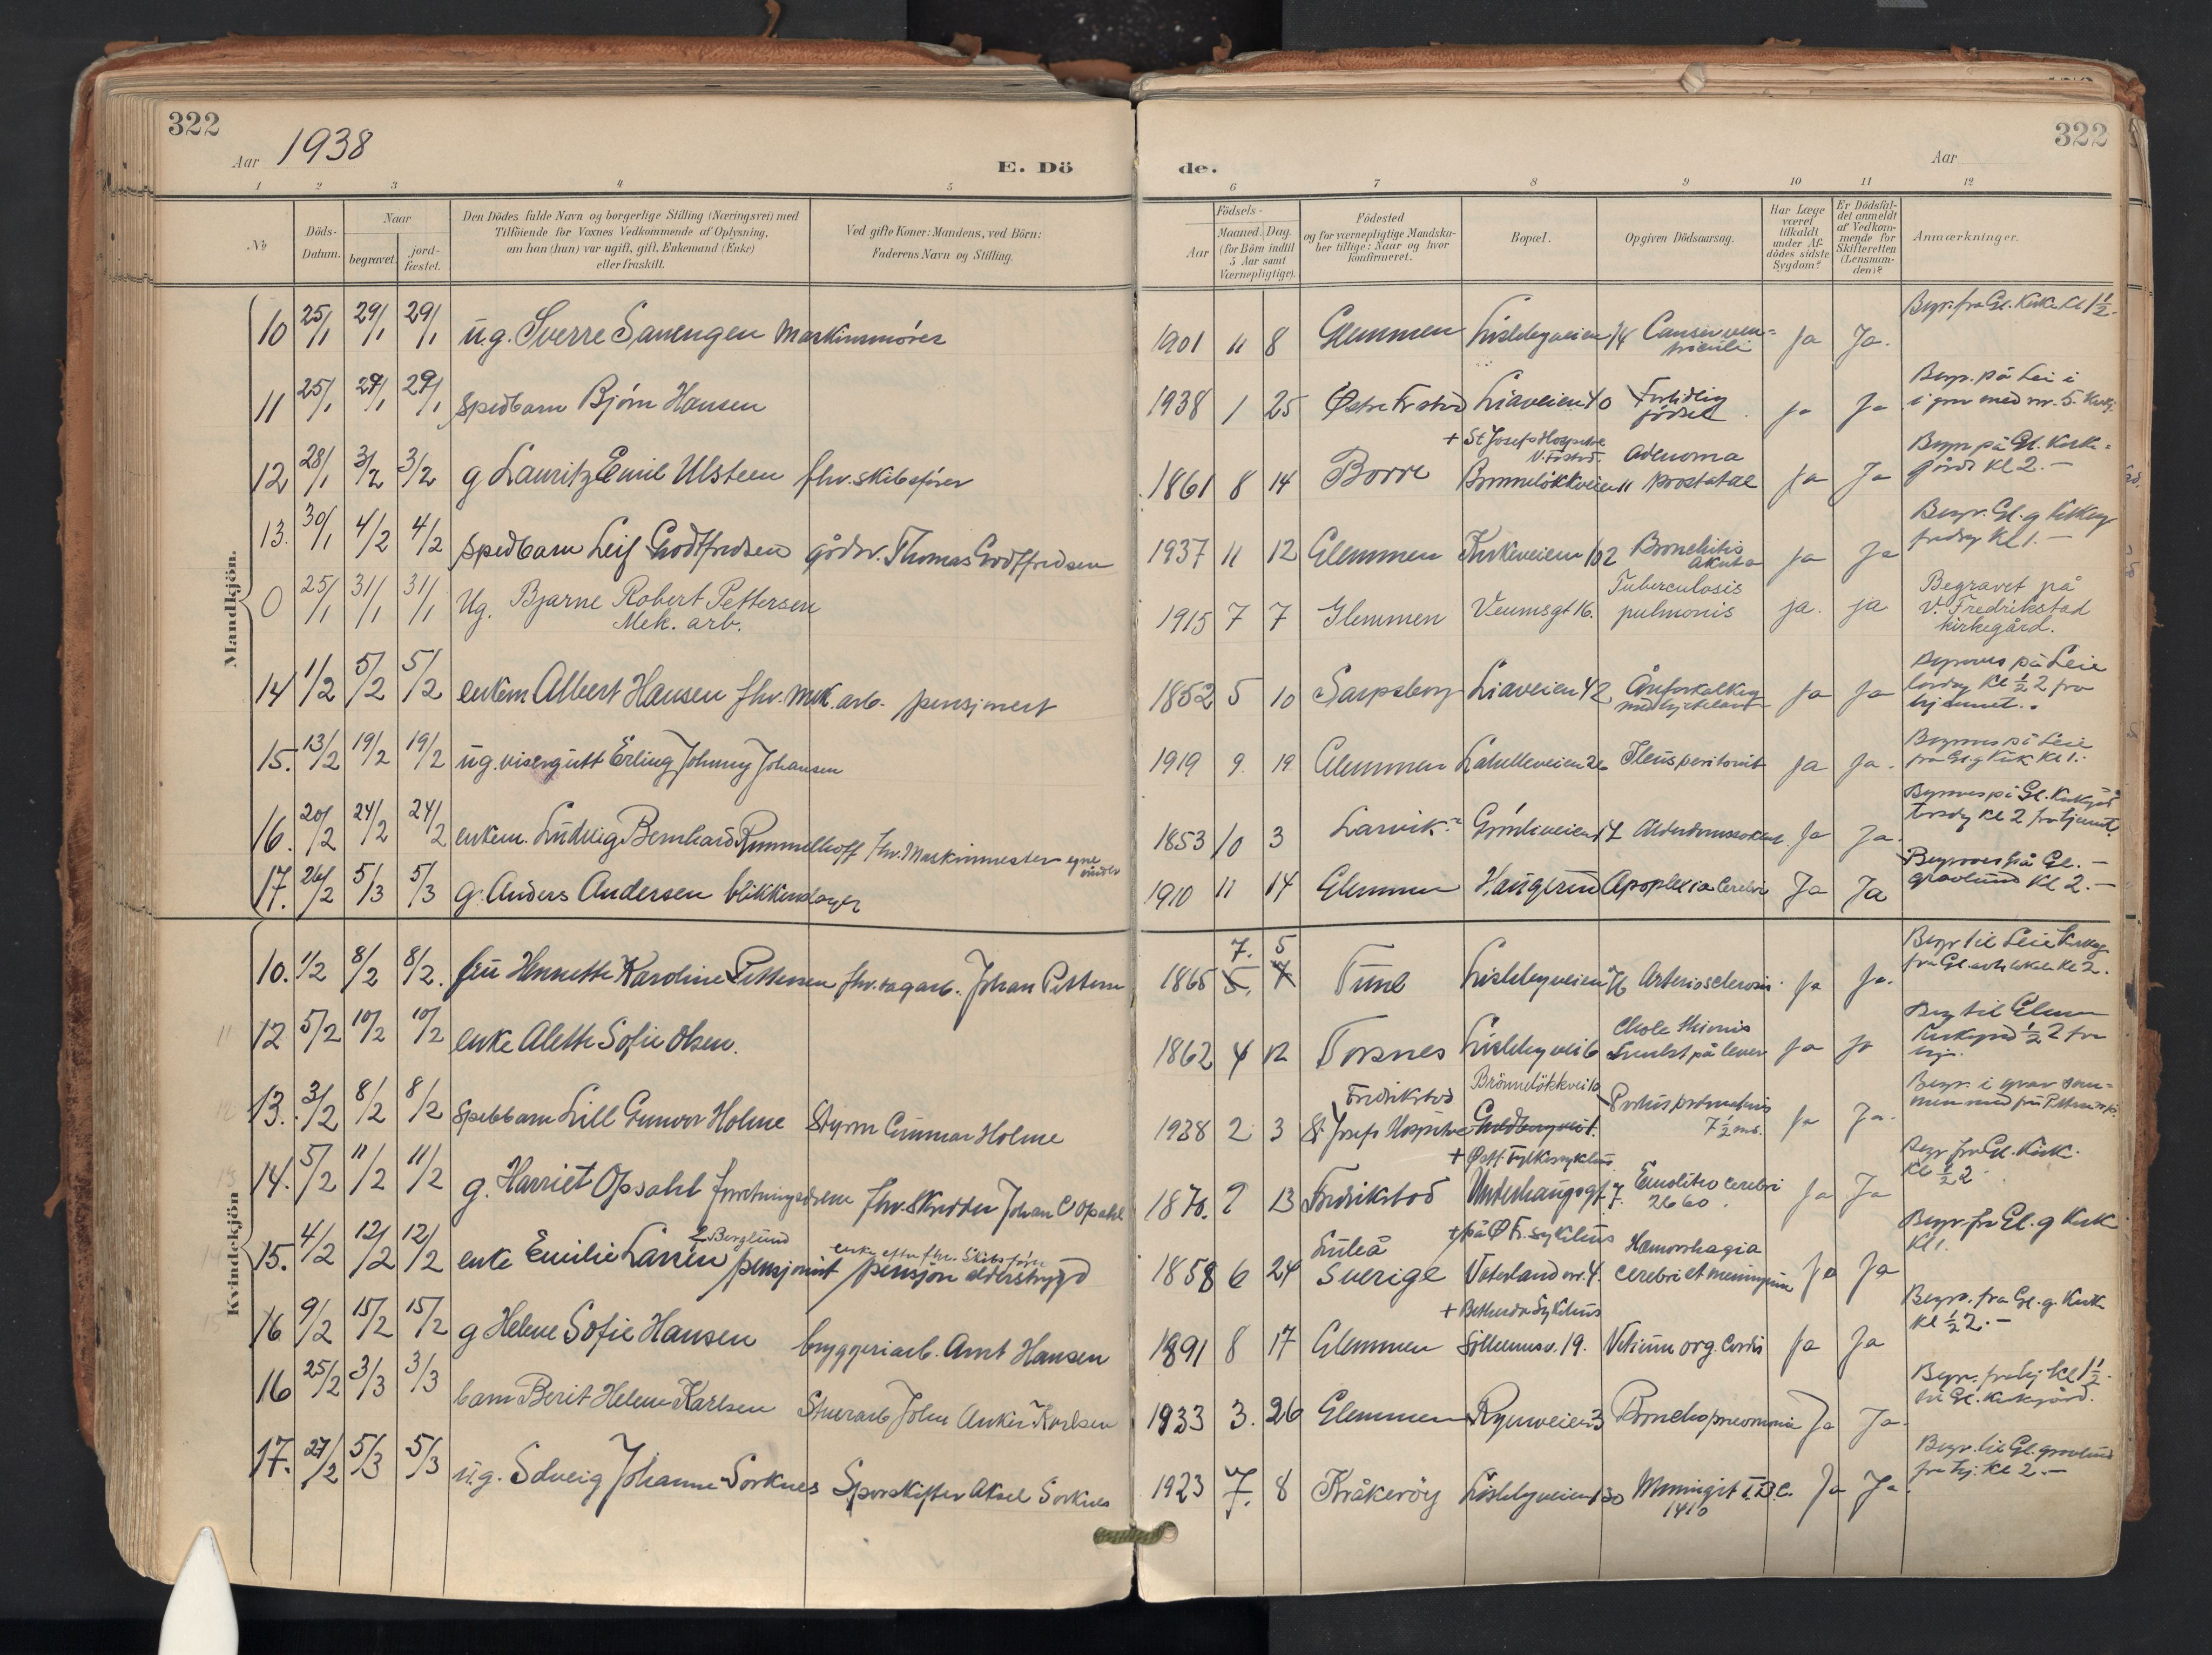 322
Aar 1938
E. Dö
1 2 3 4 5
No
Döds-Datum.
Naar
begravet.
jord-fæstet.
Den Dödes fulde Navn og borgerlige Stilling (Næringsvei) med
Tilföiende for Voxnes Vedkommende af Oplysning,
om han (hun) var ugift, gift, Enkemand (Enke)
eller fraskilt.
Ved gifte Koner: Mandens, ved Börn:
Faderens Navn og Stilling.
Mandkjön.
10 25/1 29/1 29/1 ug. Sverre Sanengen Maskinmører
11 25/1 29/1 29/1 spedbarn Bjørn Hansen
12 28/1 3/2 3/2 g Lauritz Emil Ulsteen fhv. skibsfører
13. 30/1 4/2 4/2 spedbarn Leif Godtfredsen gårdsv. Thomas Godtfredsen
0 25/1 31/1 31/1 Ug. Bjarne Robert Pettersen
Mek. arb.
14 1/2 5/2 5/2 enkem Albert Hansen fhv. mek. arb. pensjonert
15. 13/2 19/2 19/2 ug. visergutt Erling Johnny Johansen
16. 20/2 24/2 24/2 enkem. Ludvig Bernhard Rummelhoff fhv. Maskinmester egne midler
17. 26/2 5/3 5/3 g. Anders Andersen blikkenslager
Kvindekjön
10. 1/2 8/2 8/2. fru Hennette Karoline Pettersen fhv. sagarb. Johan Pettersen
11 12 5/2 10/2 10/2 enke Alette Sofie Olsen.
12 13. 3/2 8/2 8/2 spebbarn Lill Gunvor Holme Styrm Gunnar Holme
13 14. 5/2 11/2 11/2 g. Harriet Opsahl forretningsdrivende fhv. skredder Johan C Opsahl
15. 4/2 12/2 12/2 enke Emilie Larsen f. Berglund pensjonist enke efter fhv. skibsfører
pensjon alderstrygd
15 16 9/2 15/2 15/2 g Helene Sofie Hansen bryggeriarb. Arnt Hansen
16 25/2 3/3 3/3 barn Berit Helene Karlsen Stuerarb John Anker Karlsen
17. 27/2 5/3 5/3 ug. Solveig Johanne Sorknes Sporskifter Aksel Sorknes
322
Aar
de.
6 7 8 9 10 11 12
Födsels-
Aar
Maaned. Dag.
(for Börn indtil
5 Aar samt
Værnepligtige).
Födested
og for værnepligtige Mandska-
ber tillige: Naar og hvor
konfirmeret.
Bopæl.
Opgiven Dödsaarsag.
Har Læge
været
tilkaldt
under Af-
dödes sidste
Sygdom?
Er Dödsfal-
det anmeldt
af Vedkom-
mende for
Skifteretten
(Lensman-
den)?
Anmærkninger.
1901 11 8 Glemmen Lislebyveien 14 Cancer ven-
triculi Ja Ja. Begr. fra Gl. Kirke kl 1½.
1938 1 25 Østre Fr.stad Liaveien 40 For tidlig
fødsel Ja Ja Begr. på Lei i
i grav med nr. 5.
+ St Josefs Hospital
V. Fr.stad.
1861 8 14 Borre Brønneløkkveien 11 Adenoma
prostatae Ja Ja Begr. på Gl. Kirke-
gård Kl 2. -
1937 11 12 Glemmen Kirkeveien 102 Bronchitis
akuta Ja Ja Begr. Gl. g
fredag Kl 1. -
1915 7 7 Glemmen Veumsgt 16. Tuberculosis
pulmonis ja. ja Begravet på
V. Fredrikstad
kirkegård.
1852 5 10 Sarpsborg Liaveien 42 Åreforkalkng
Ja Ja Begraves på Leie
lørdag Kl ½ 2 fra
hjemmet.
1919 9. 19 Glemmen Labelleveien 26 Ileus peritonit Ja Ja. Begraves på Leie
fra Gl. g Kirk Kl 1.
1853 10 3 Larvik Grønliveien 17 Alderdomssvakhet. Ja Ja. Begraves på Gl. Kirkegård
torsdag Kl 2 fra hjemmet
1910 11 14 Glemmen Haugerud Apoplexia Cerebri Ja Ja Begraves på Gl. -
gravlund Kl 2. -
7. 5
1865 5. 7 Tune Lislebyveien 76 Arteriosclerosis. Ja Ja. Begr. til Leie Kirkeg
fra Gl. Kl 2.
1862 4 12 Torsnes Lislebyvei 6 Chole thiasis
Svulst på lever Ja Ja Beg til Glemm
Kirkegård ½ 2 fra
hj.
1938 2 3 Fredrikstad
St. Josefs Hospital Brønneløkkvei 10
Goldbergveit. Partus prematurus
7½ md. Ja Ja. Begr. i grav sam-
men med fru Pettersen
+ Østf. Fylkessykehus
1870. 2 13 Fredrikstad Underhaugsgt 7. Emolitio cerebri
2660. Ja Ja Begr fra Gl. Kirk.
Kl ½ 2
+ på Ø Fr. sykehus
1858 6 24 Luleå
Sverige Vaterland nr. 4. Hæmorrhagia
cerebri et meningum Ja Ja Begr. fra Gl. g Kirk
Kl 1.
+ Bethesda Sykehus
1891 8 17 Glemmen 19. Vitium org. Cordis Ja Ja Begr. fra Gl. g. Kirk
Kl ½ 2. -
1933 3. 26 Glemmen Rynveien 3 Bronchopneumonia Ja Ja. Begr. fra hj. Kl 1½.
til Gl. Kirkegård.
1923 7. 8 Kråkerøy Lislebyveien 130 Meningit T.B.C.
1410 Ja Ja. Begr. til Gl. gravlund
fra hj. Kl 2. -